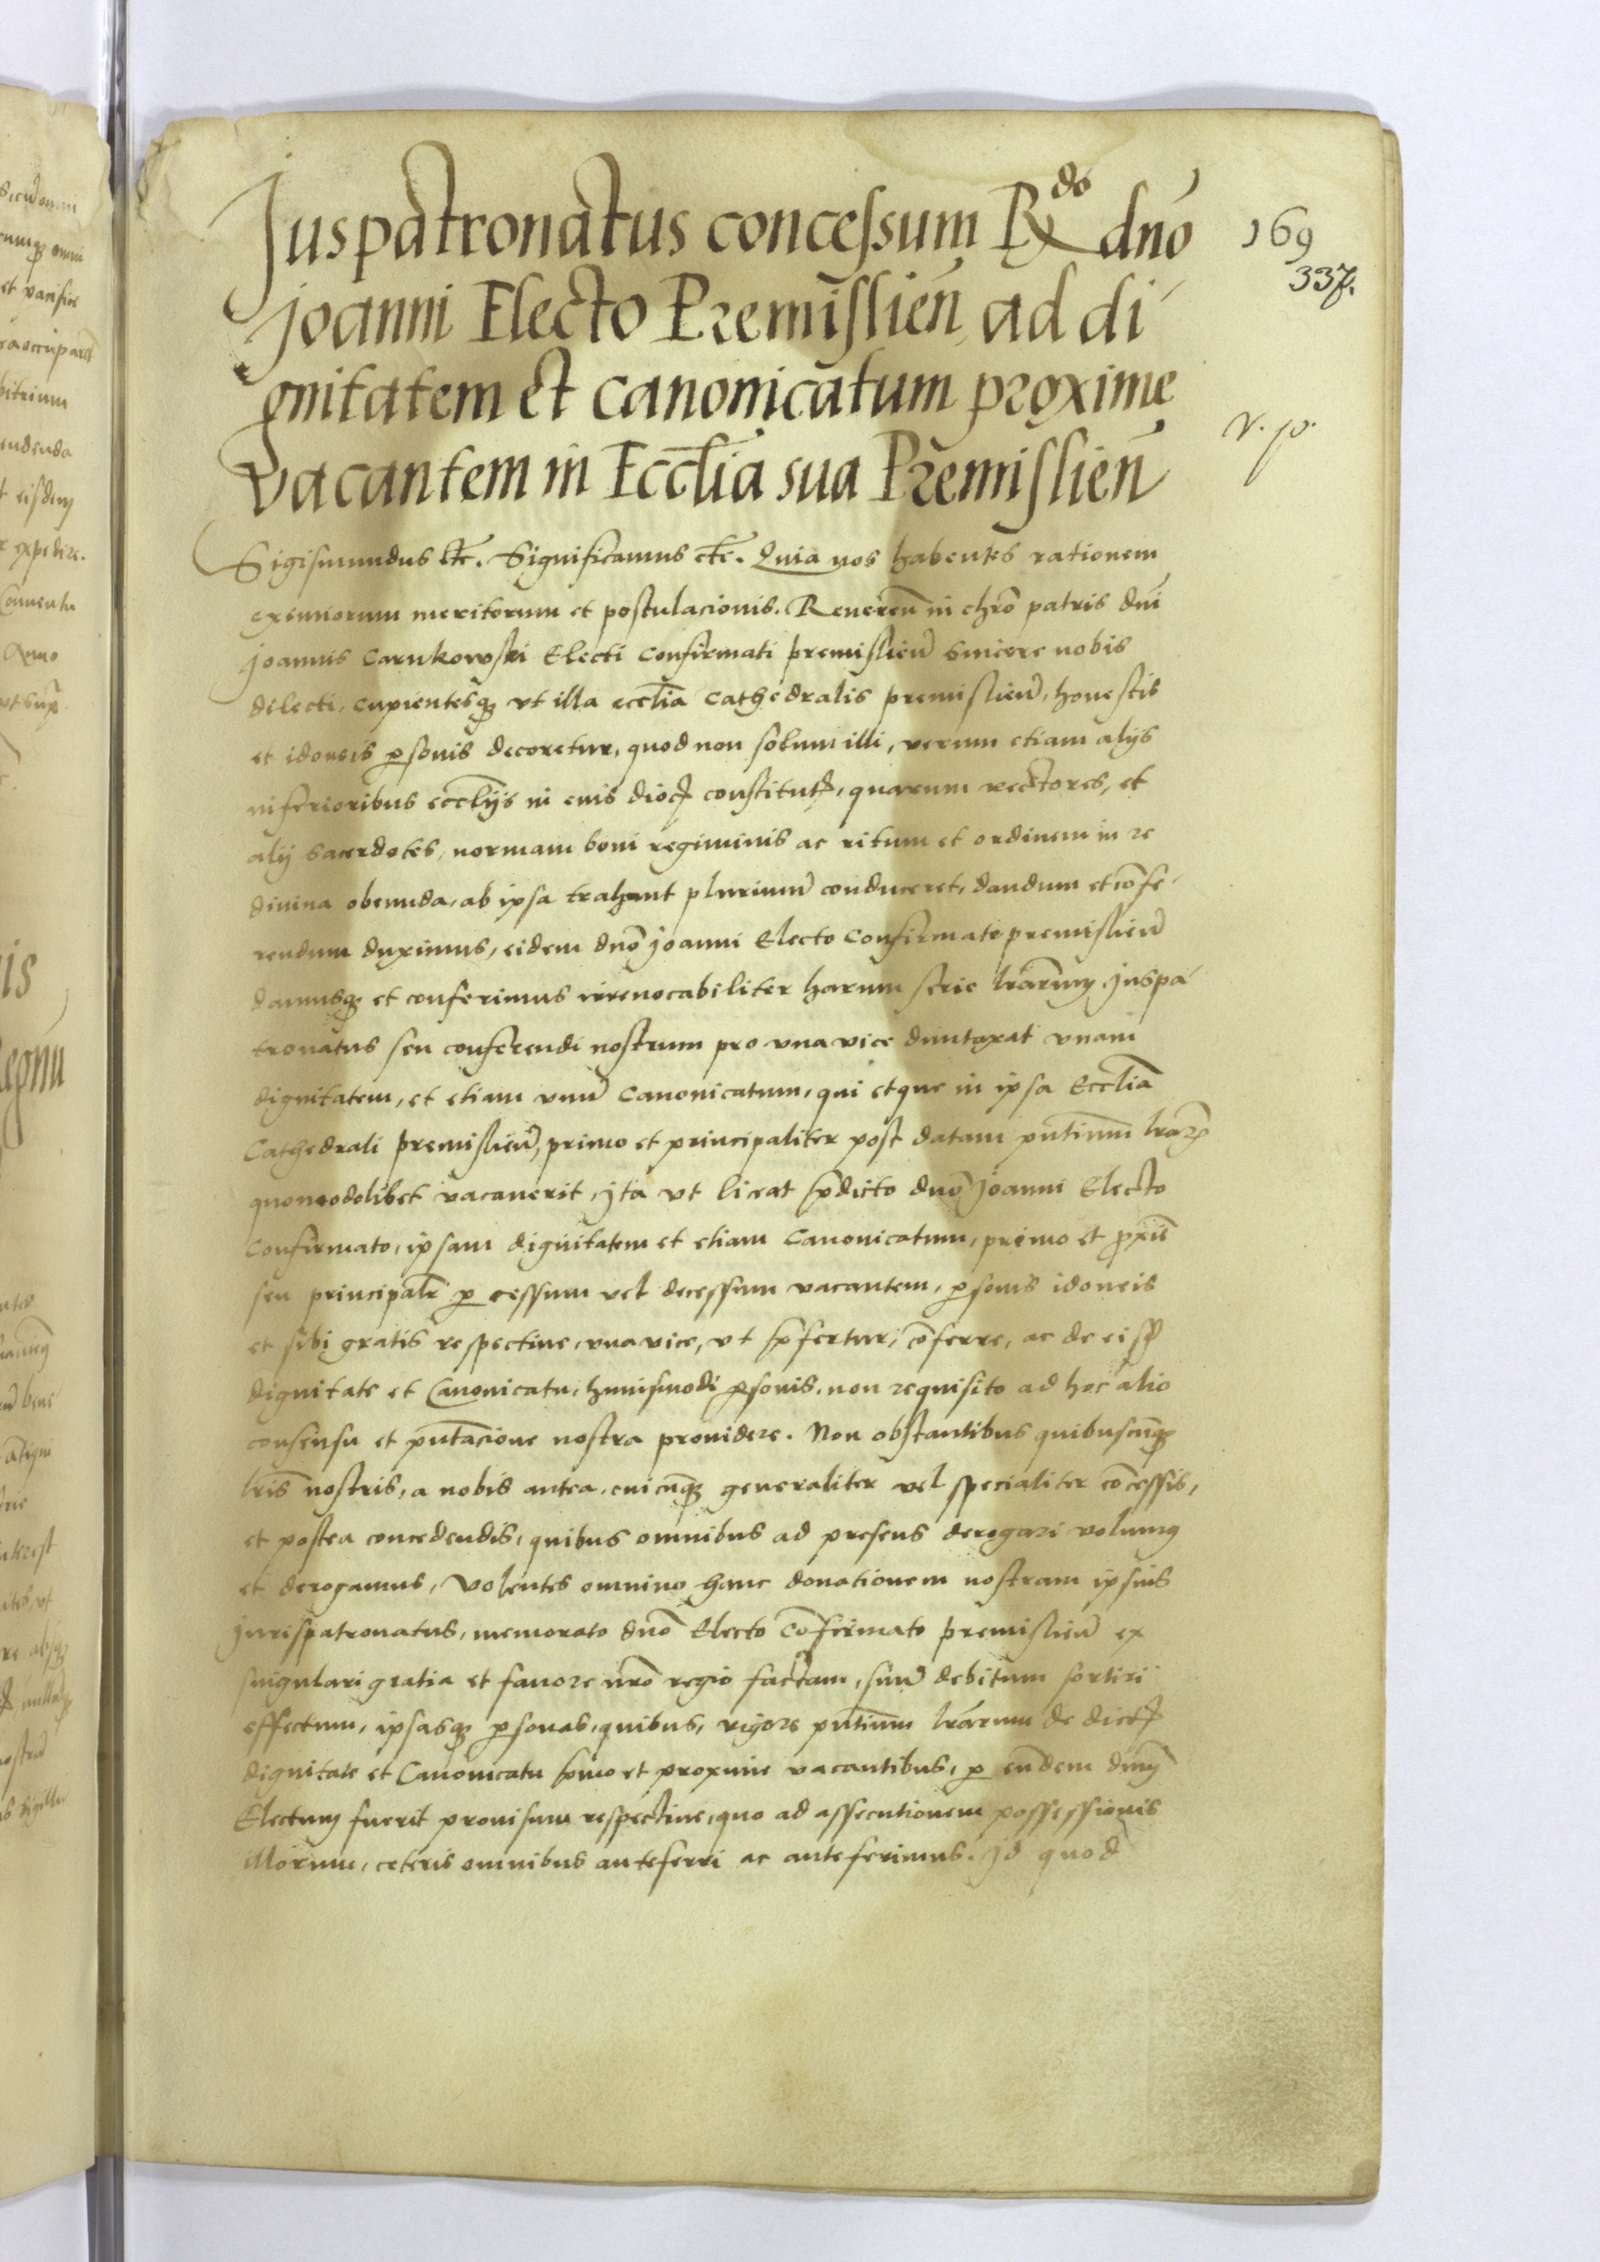 Juspatronatus concessum R^do dno
Joanni Electo Premislien ad di
gnitatem et canonicatum proxime
vacantem in Ecclia sua Premislien
169
337.
v. p.
Sigismundus etc. Significamus etc. Quia nos habentes rationem
eximiorum meritorum et postulacionis. Reueren in chro patris dni
Joannis Carnkowski Electi Confirmati premislien sincere nobis
delecti, cupientesq ut illa ecclia Cathedralis premislien, honestis
et idoneis psonis decoretur, quod non solum illi, verum etiam alijs
inferioribus eccliis in eius dioc constitut, quarum rectores, et
alij sacerdotes, normam boni regiminis ac ritum et ordinem in re
diuina obeunda, ab ipsa trahunt plurimu conduceret, dandum et cofe
rendum duximus, eidem dno Joanni Electo Confirmato premislien
damusq et conferimus irreuocabiliter harum serie lrarum, Juspa
tronatus seu conferendi nostrum pro vna vice duntaxat vnam
dignitatem, et etiam vnu Canonicatum, qui et que in ipsa Ecclia
Cathedrali premislien, primo et principaliter post datam pntium lrar
quomodolibet vacauerit, Ita vt liceat pdicto dno Joanni Electo
Confirmato, ipsam dignitatem et etiam Canonicatum, primo et proxie
seu principalr p cessum vel decessum vacantem, psonis idoneis
et sibi gratis respectiue, vna vice, vt pfertur, coferre, ac de eisd
dignitate et Canonicatu, huiusmodi psonis, non requisito ad hoc alio
consensu et pntacione nostra prouidere. Non obstantibus quibuscuq
lris nostris, a nobis antea, cuicuq generaliter vel specialiter cocessis,
et postea concedendis, quibus omnibus ad presens derogari volumus
et derogamus, Volentes omnino hanc donationem nostram ipsius
Jurispatronatus, memorato dno Electo Cofirmato premislien ex
singulari gratia et fauore nro regio factam, suu debitum sortiri
effectum, ipsasq psonas, quibus, vigore pntium lrarum de dict
dignitate et Canonicatu pmo et proxime vacantibus, p eundem dnum
Electum fuerit prouisum respectiue, quo ad assecutionem possessionis
illorum, ceteris omnibus anteferri ac anteferimus. Id quod